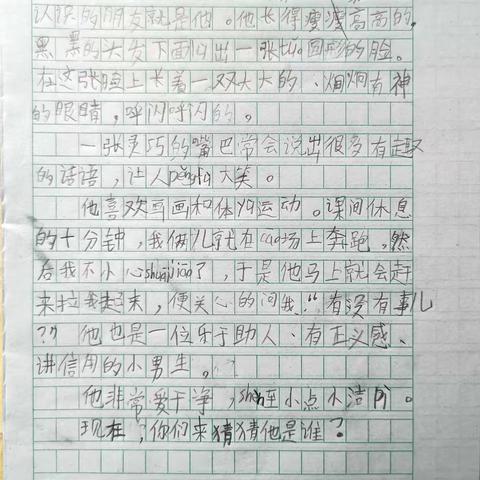 认识的朋友就是他。他长得瘦瘦高高的。
黑黑的头发下面一张椭圆形的脸。
在这张脸上长着一双大大的、炯炯有神
的眼睛，呼闪呼闪的。
一张灵巧的嘴巴常会说出很多有趣
的话语，让人pěngfù大笑。
他喜欢画画和体育运动。课间休息
的十分钟，我俩儿就在cāo场上奔跑，然
后我不小心shuāijiāo了，于是他马上就会赶
来拉我起来，便关心的问我：“有没有事儿
？” 他也是一位乐于助人、有正义感、
讲信用的小男生。
他非常爱干净，shèn至小点小洁。
现在，你们来猜猜他是谁？